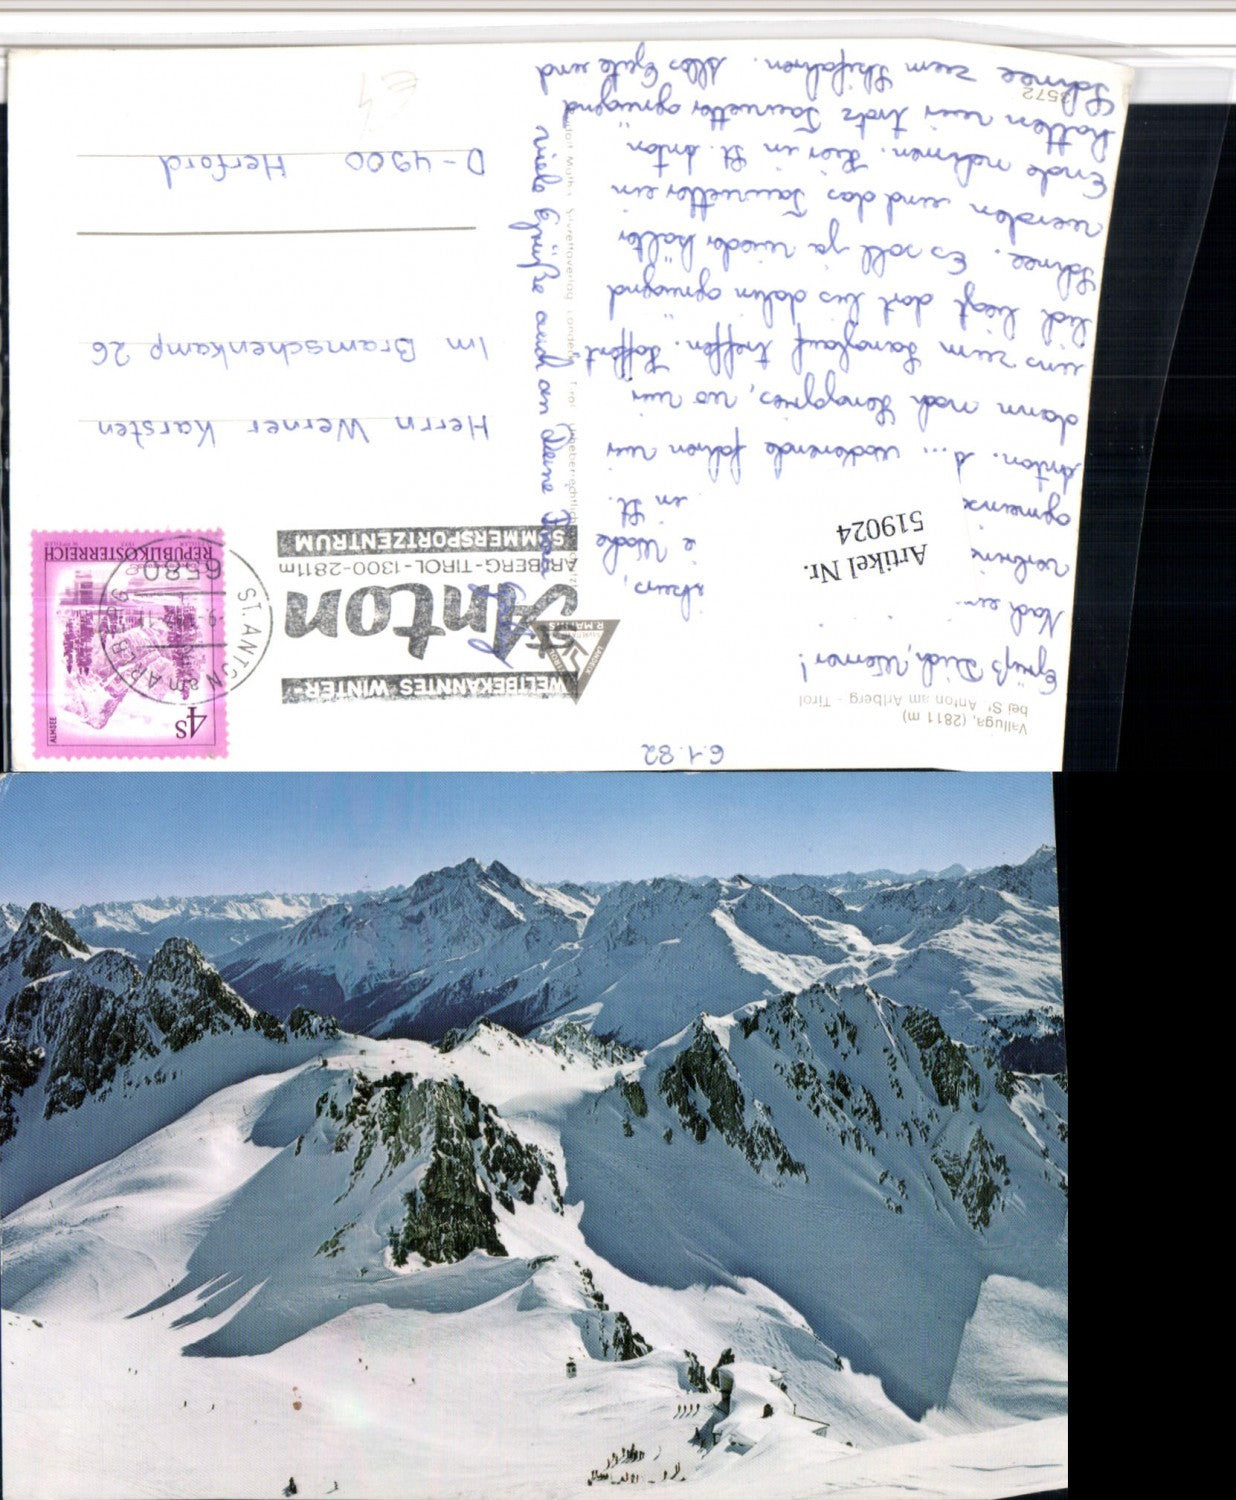 6.1.82
Valluga, (2811 m)
bei St. Anton am Arlberg - Tirol
Grüß Dich, Werner!
Nach ein
Woche
in St.
Anton. Wochenende fahren wir
dann nach, wo wir
uns zum Langlauf treffen. Hoffent
lich liegt dort bis dahin genügend
Schnee. Es soll ja wieder kälter
werden und das Tauwetter ein
Ende nehmen. Hier in St. Anton
hatten wir trotz Tauwetter genügend
Schnee zum Skifahren. Alles Gute und
viele Grüße auch an Deine
3572
Artikel Nr.
519024
WELTBEKANNTES WINTER-
St. Anton
ARLBERG-TIROL-1300-2811m
SOMMERSPORTZENTRUM
R. MATHIS
ST. ANTON am ARLBERG
6580
4S
ALMSEE
REPUBLIK ÖSTERREICH
Herrn Werner Karsten
Im Bramschenkamp 26
D-4900 Herford